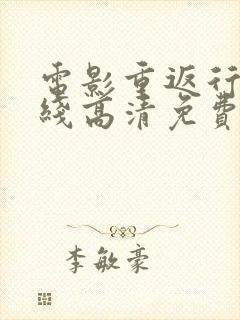 電影重返行
綫高清免費
李敏豪